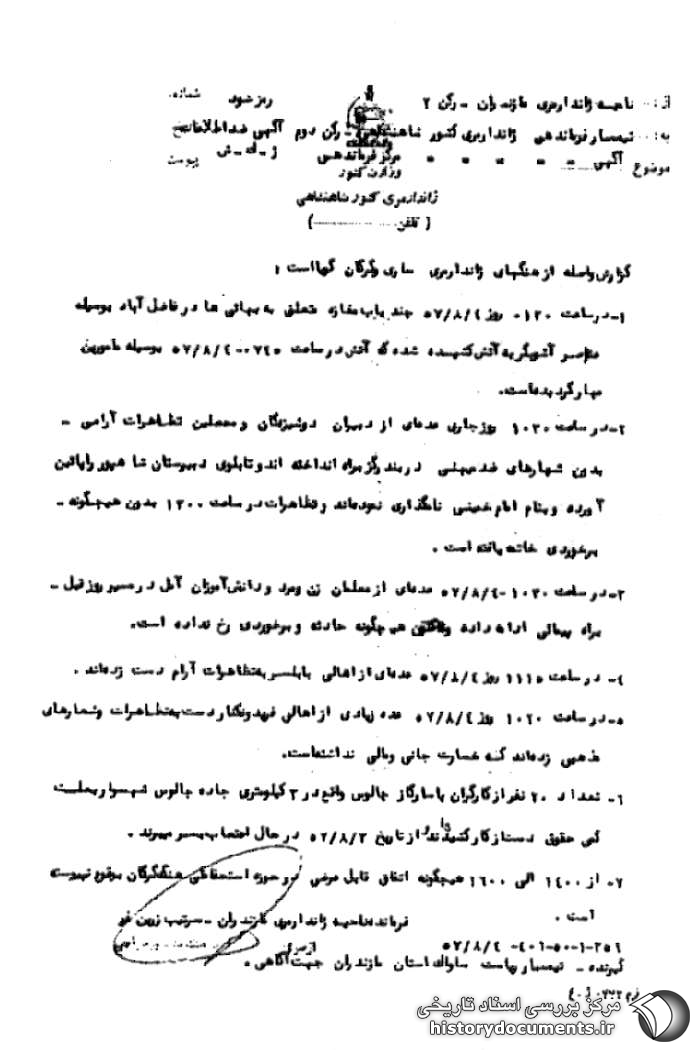 از: ناحیه ژاندارمری مازندران - رکن ۲ رمز شود شماره:
به: تیمسار فرماندهی ژاندارمری کشور شاهنشاهی - رکن دوم آگهی ضد اطلاعات
موضوع آگهی " " " " مرکز فرماندهی ژ - ک - ش پیوست
وزارت کشور
ژاندارمری کشور شاهنشاهی
( تلفن )
گزارش واصله از هنگهای ژاندارمری ساری و گرگان گویا است :
۱- در ساعت ۰۱۳۰ روز ۵۷/۸/۴ چند باب مغازه متعلق به بهائی ها در فاضل آباد بوسیله
عناصر آشوبگر به آتش کشیده شده که آتش در ساعت ۰۷۴۵ - ۵۷/۸/۴ بوسیله مامورین
مهار گردیده است.
۲- در ساعت ۱۰۳۰ روز جاری عده‌ای از دبیران دوشیزگان و محصلین تظاهرات آرامی -
بدون شعارهای ضد میهنی در بندر گز براه انداخته اند و تابلوی دبیرستان شاهپور را پائین
آورده و بنام امام خمینی نامگذاری نموده‌اند و تظاهرات در ساعت ۱۲۰۰ بدون هیچگونه -
برخوردی خاتمه یافته است .
۳- در ساعت ۱۰۳۰ - ۵۷/۸/۴ عده‌ای از معلمان زن و مرد و دانش‌آموزان آمل در مسیر روز قبل -
براه پیمائی ادامه داده و تاکنون هیچگونه حادثه و برخوردی رخ نداده است.
۴- در ساعت ۱۱۱۵ روز ۵۷/۸/۴ عده‌ای از اهالی بابلسر به تظاهرات آرام دست زده‌اند .
۵- در ساعت ۱۰۲۰ روز ۵۷/۸/۴ عده زیادی از اهالی فریدونکنار دست به تظاهرات و شعارهای
مذهبی زده‌اند که خسارت جانی و مالی نداشته است.
۶- تعداد ۲۰ نفر از کارگران پاسارگاد چالوس واقع در ۳ کیلومتری جاده چالوس شهسوار بعلت
کمی حقوق دست از کار کشیده‌اند و از تاریخ ۵۷/۸/۳ در حال اعتصاب بسر میبرند .
۷- از ۱۴۰۰ الی ۱۶۰۰ هیچگونه اتفاق قابل عرضی در حوزه استحفاظی هنگ گرگان بوقوع نپیوسته
است .
فرمانده ناحیه ژاندارمری مازندران - سرتیپ زرین فر
۲۵۶-۱-۵۰-۴۰۱- ۵۷/۸/۴ از سوی
گیرنده - تیمسار ریاست ساواک استان مازندران جهت آگاهی .
مرکز بررسی اسناد تاریخی
historydocuments.ir